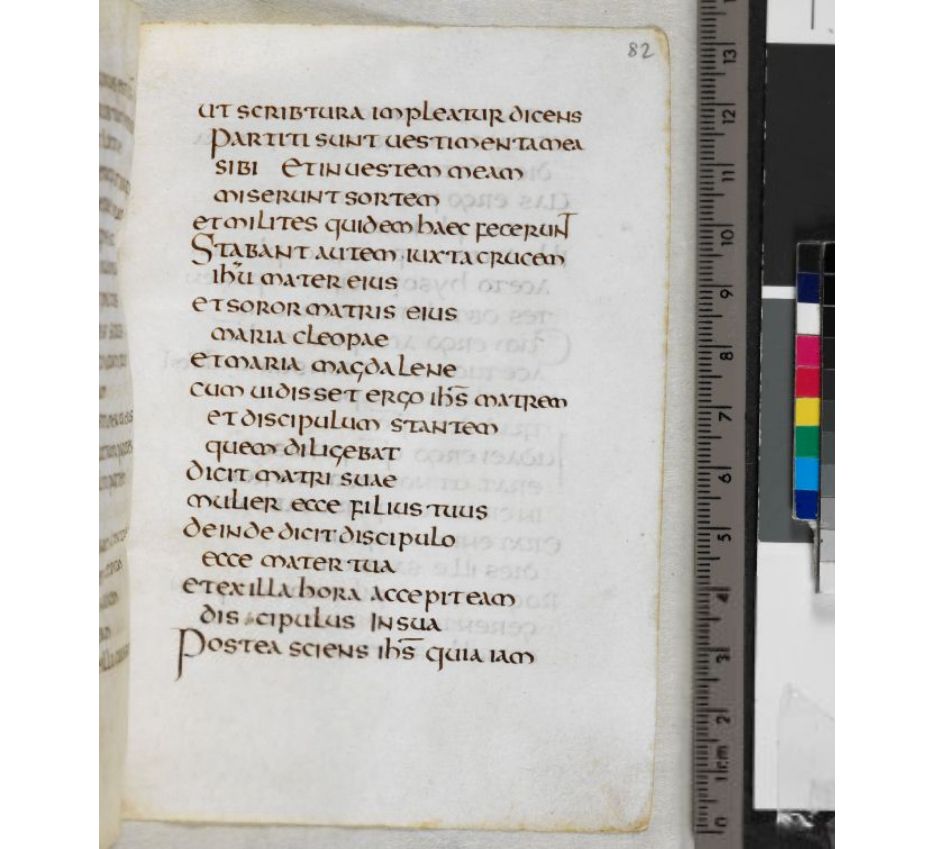 82
UT SCRIBTURA IMPLEATUR DICENS
PARTITI SUNT UESTIMENTA MEA
SIBI ET IN UESTEM MEAM
MISERUNT SORTEM
ET MILITES QUIDEM HAEC FECERUNT
STABANT AUTEM IUXTA CRUCEM
IHU MATER EIUS
ET SOROR MATRIS EIUS
MARIA CLEOPAE
ET MARIA MAGDALENE
CUM UIDISSET ERGO IHS MATREM
ET DISCIPULUM STANTEM
QUEM DILIGEBAT
DICIT MATRI SUAE
MULIER ECCE FILIUS TUUS
DEINDE DICIT DISCIPULO
ECCE MATER TUA
ET EX ILLA HORA ACCEPIT EAM
DISCIPULUS IN SUA
POSTEA SCIENS IHS QUIA IAM
13
12
11
10
9
8
7
6
5
4
3
2
1cm
0